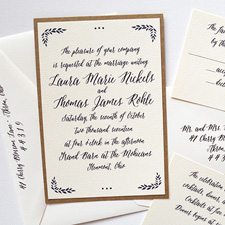 The pleasure of your company
is requested at the marriage uniting
Laura Marie Nickels
and
Thomas James Rohle
Saturday, the seventh of October
two thousand seventeen
at four o'clock in the afternoon
Grand Barn at the Mohicans
Glenmont, Ohio
The fa
by the
accept
Mr. and Mrs.
41 Cherry Blossom
The celebration
cocktails, dinner
Cocktail
Dinner